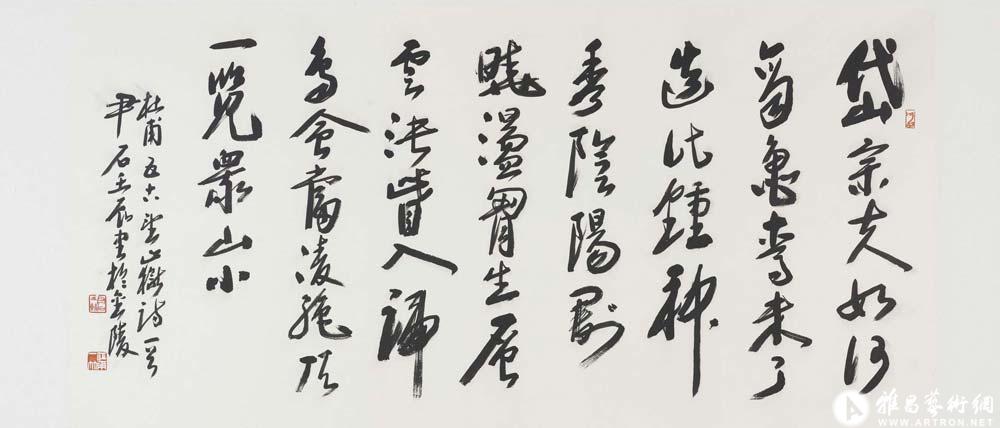 岱宗夫如何
齊魯青未了
造化鍾神
秀陰陽割
曉盪胷生層
雲決眥入歸
鳥會當凌絕頂
一覽眾山小
杜甫五古望嶽詩一首
尹石壬辰書於金陵
雅昌藝術網
WWW.ARTRON.NET